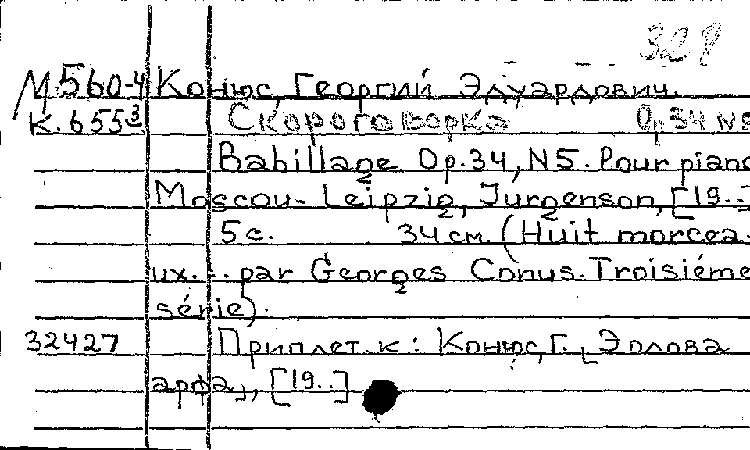 328
М560-4 Конюс, Георгий Эдуардович.
К.655³ Скороговорка Op.34 N5
Babillage Op.34, N5. Pour piano
Moscou- Leipzig, Jurgenson, [19..]
5 с. 34 см. (Huit morcea-
ux... par Georges Conus. Troisiéme
série).
32427 Приплет. к: Конюс, Г. [Эолова
арфа], [19..]